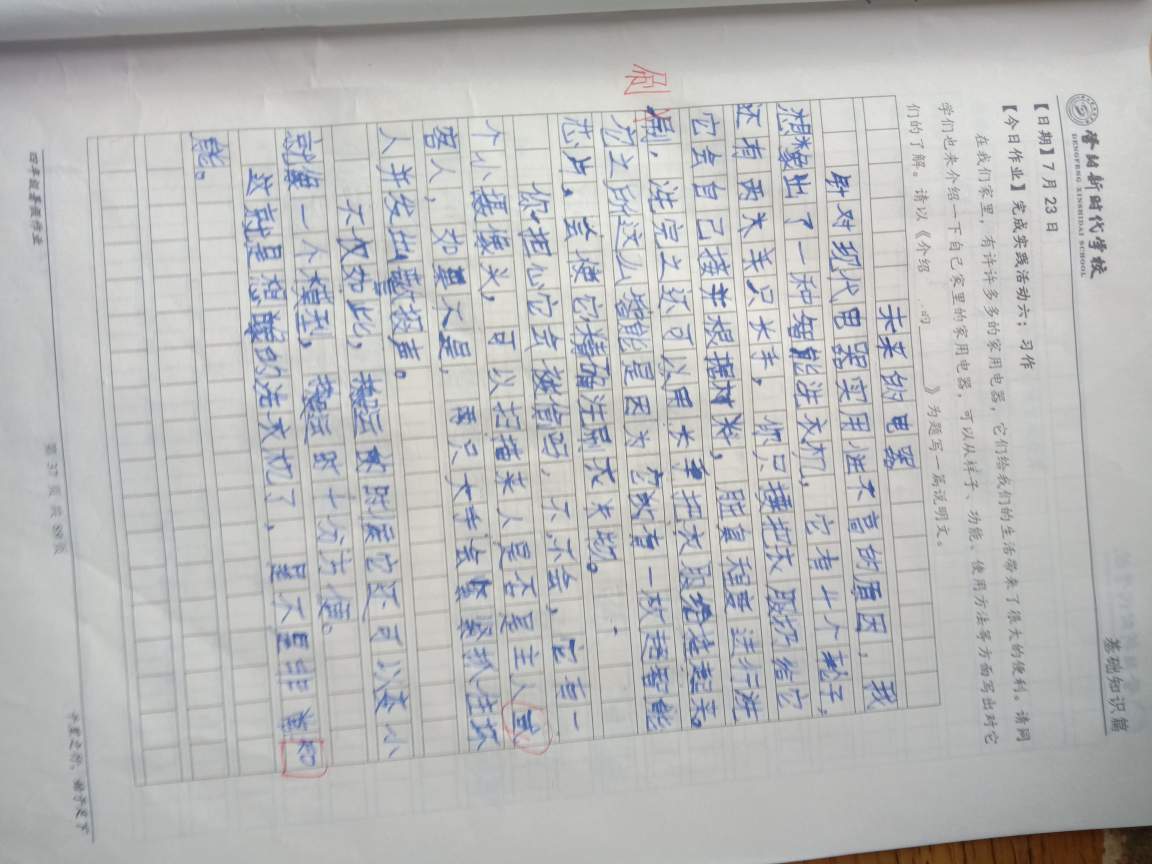 登封新时代学校
DENGFENG XINSHIDAI SCHOOL
基础知识篇
【日期】7月23日
【今日作业】完成实践活动六：习作
在我们家里，有许许多多的家用电器，它们给我们的生活带来了很大的便利。请同
学们也来介绍一下自己家里的家用电器，可以从样子、功能、使用方法等方面写出对它
们的了解。请以《介绍 的 》为题写一篇说明文。
未来的电器
针对现代电器实用性不高的原因，我
想象出了一种智能洗衣机，它有4个轮子，
还有两大关只长手，你只操把衣服扔给它
它会自己接并根据材料，脏臭程度进行洗
刷，洗完之还可以用长手把衣服给挂起来。
它之所这么智能是因为它有一枚超智能
芯片，会使它精确注刷衣物。
你担心它会被偷吗，不不会，它有一
个小摄像头，可以扫描来人是否是主人或
客人，如果不是，两只大手会紧紧抓住坏
人并发出警报声。
不仅如此，搬运的时候它还可以变小
就像一个模型，搬运时十分方便。
这就是想象的洗衣机了，是不是非常智
能。
刷
四年级暑假作业
第37页共99页
千里之行，始于足下